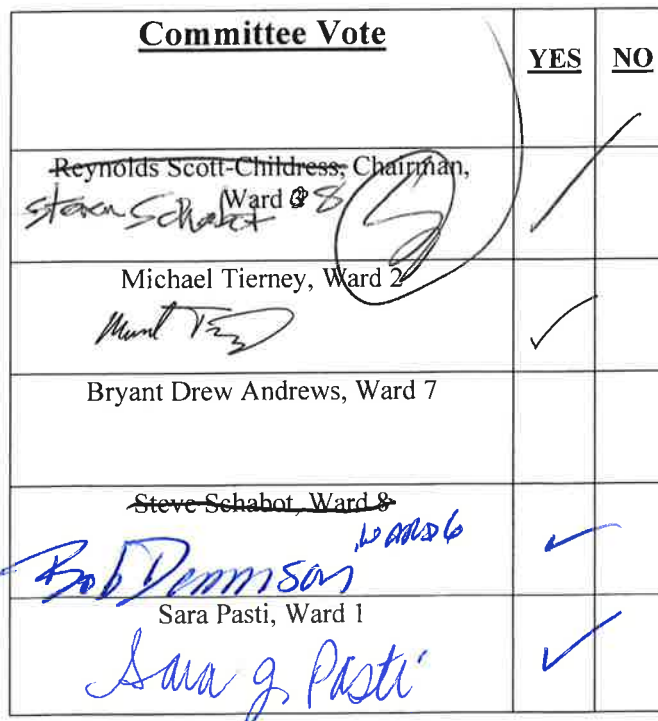 Committee Vote
YES NO
Reynolds Scott-Childress, Chairman,
Ward 8
Steven Schabot
Michael Tierney, Ward 2
Bryant Drew Andrews, Ward 7
Steve Schabot, Ward 8
, WARD 6
Bob Dennison
Sara Pasti, Ward 1
Sara g. Pasti